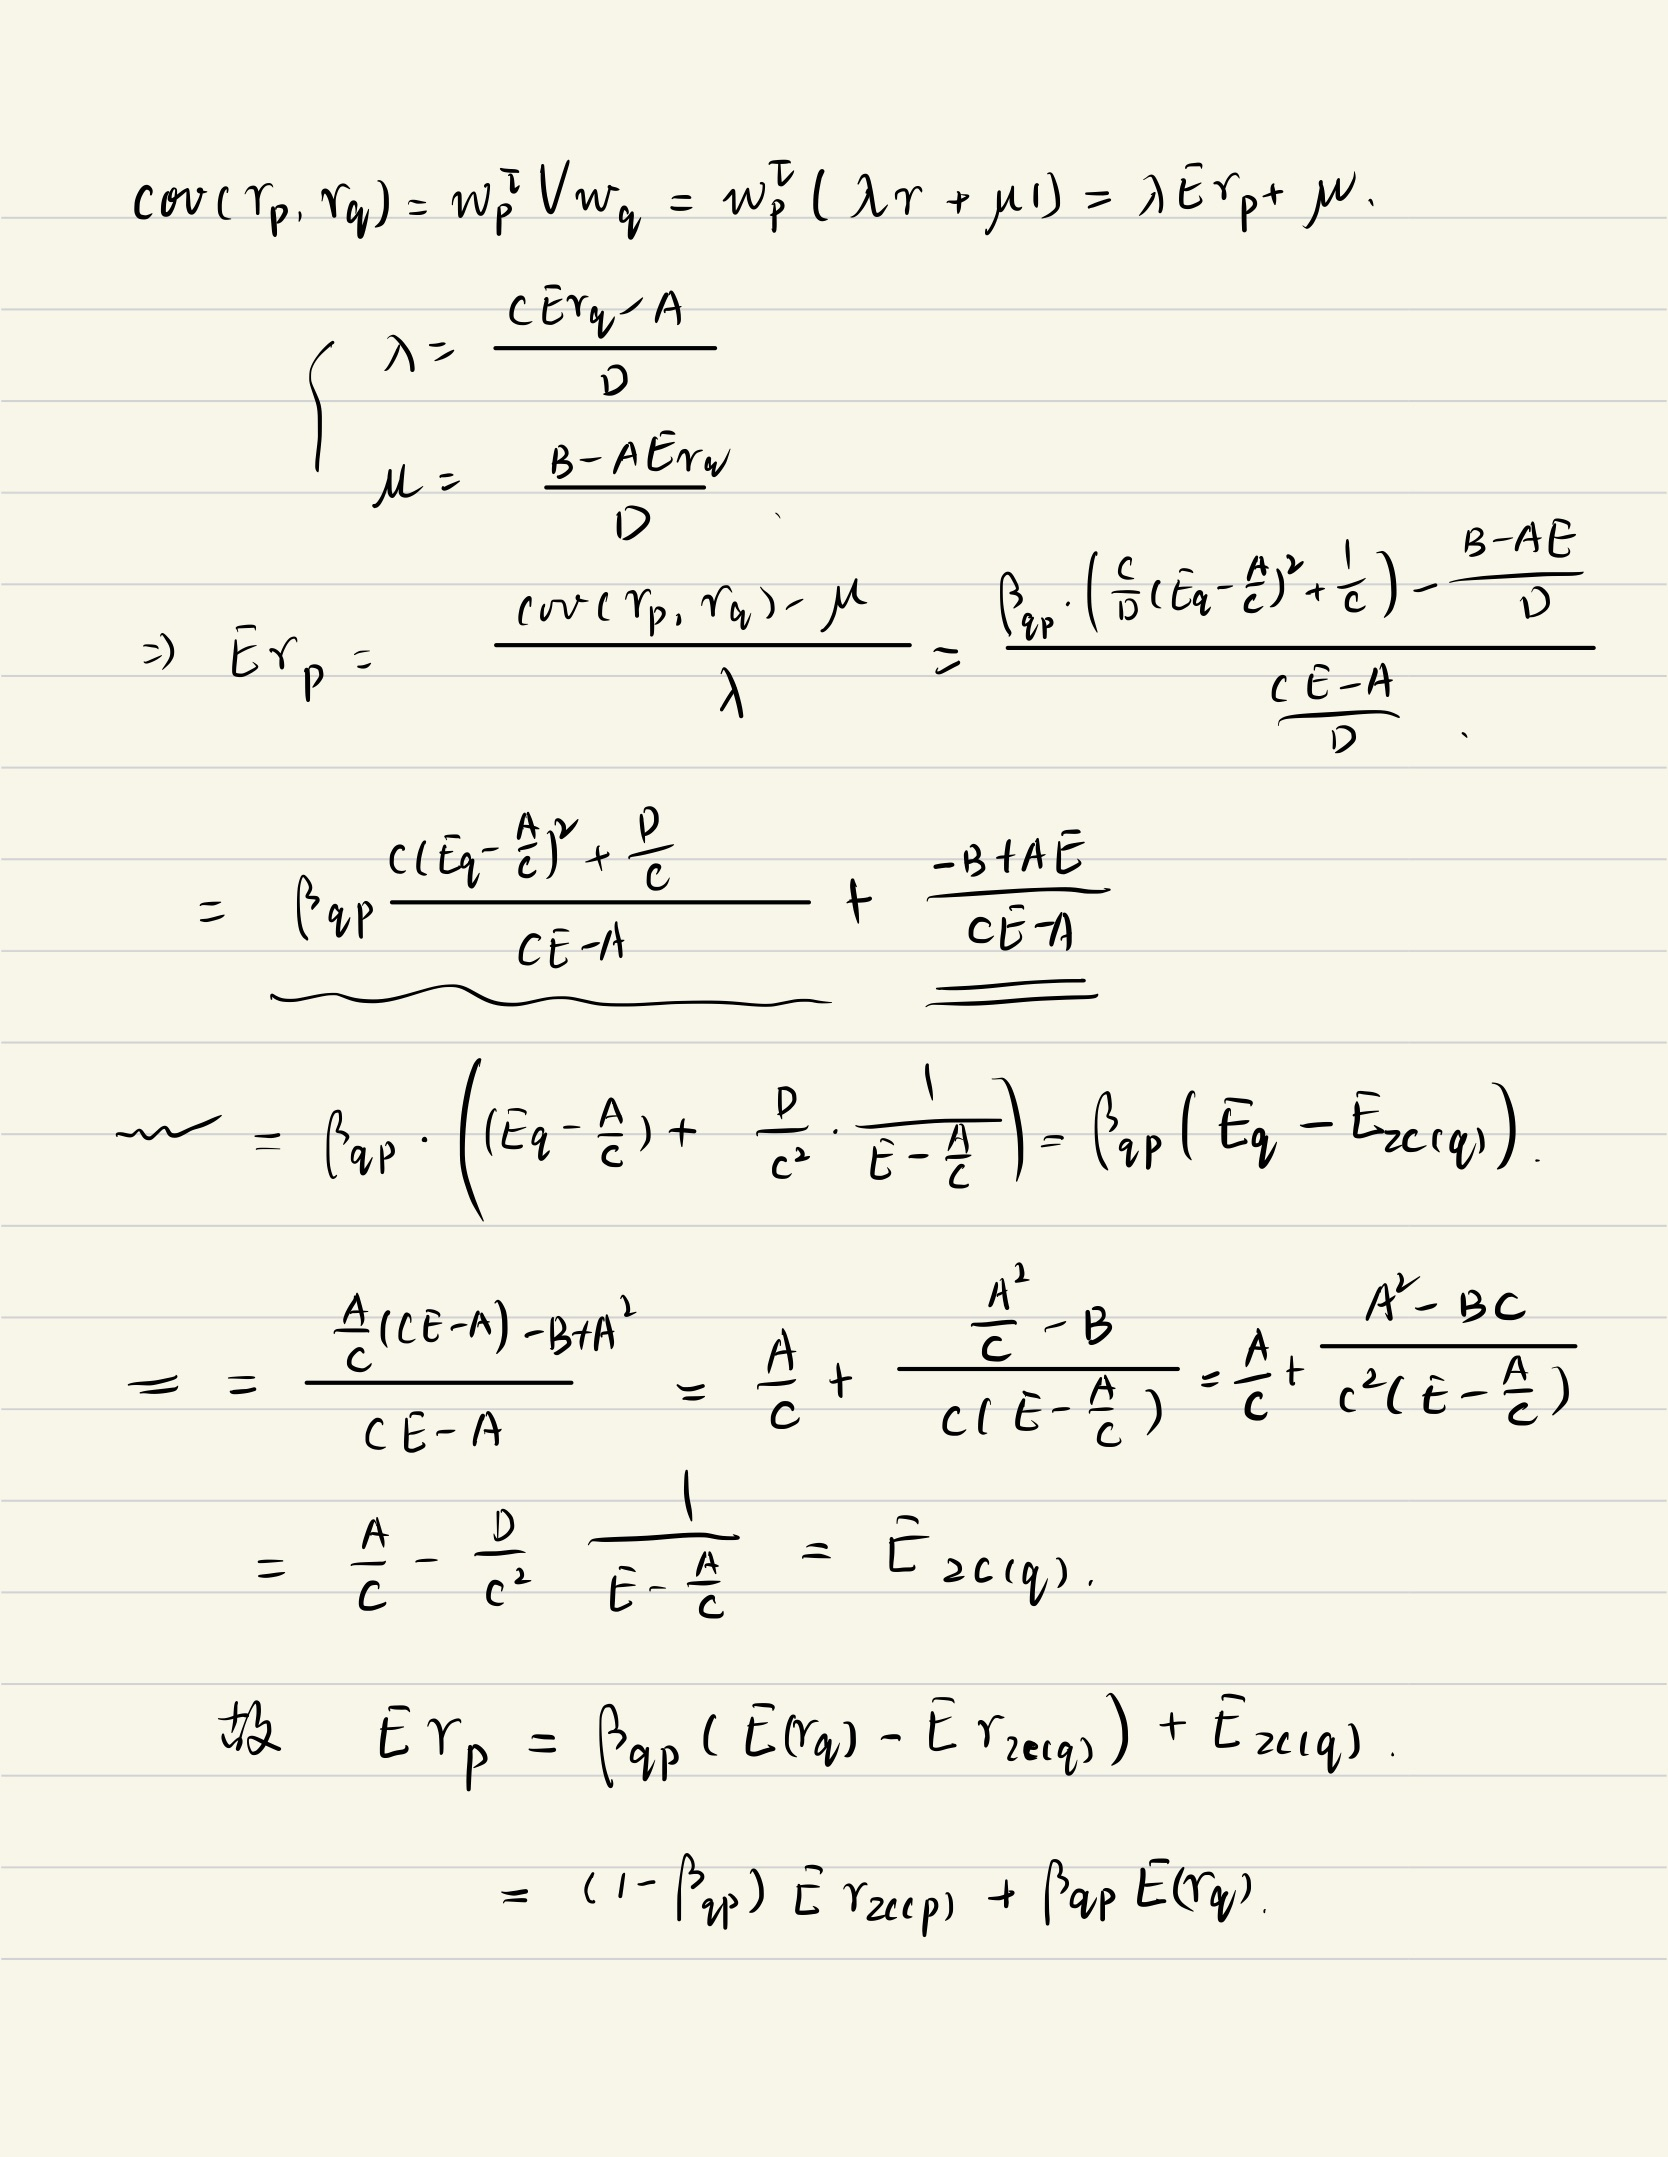 cov(r_p, r_q) = w_p^T V w_q = w_p^T ( λr + μ1) = λ E r_p + μ.
{ λ = \frac{C E r_q - A}{D}
μ = \frac{B - A E r_q}{D}
⇒ E r_p = \frac{cov(r_p, r_q) - μ}{λ} = \frac{β_{qp} · (\frac{C}{D}(E_q - \frac{A}{C})^2 + \frac{1}{C}) - \frac{B - AE}{D}}{\frac{CE - A}{D}}.
= β_{qp} \frac{C(E_q - \frac{A}{C})^2 + \frac{D}{C}}{CE - A} + \frac{-B + AE}{CE - A}
= β_{qp} · ((E_q - \frac{A}{C}) + \frac{D}{C^2} · \frac{1}{E - \frac{A}{C}}) = β_{qp} ( E_q - E_{zc(q)}).
= \frac{\frac{A}{C}(CE - A) - B + A^2}{CE - A} = \frac{A}{C} + \frac{\frac{A^2}{C} - B}{C( E - \frac{A}{C})} = \frac{A}{C} + \frac{A^2 - BC}{C^2( E - \frac{A}{C})}
= \frac{A}{C} - \frac{D}{C^2} \frac{1}{E - \frac{A}{C}} = E_{zc(q)}.
故 E r_p = β_{qp} ( E(r_q) - E r_{zc(q)}) + E_{zc(q)}.
= (1 - β_{qp}) E r_{zc(p)} + β_{qp} E(r_q).